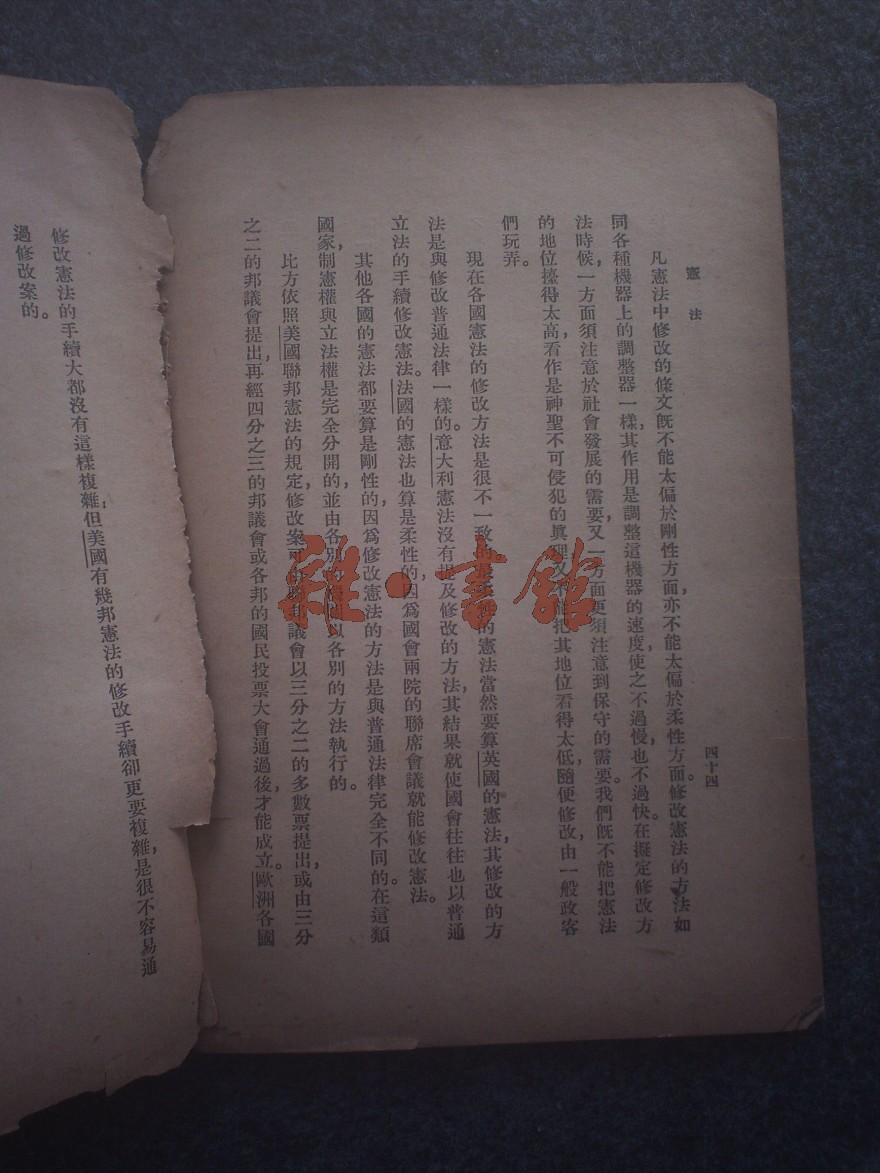 憲法
四十四
凡憲法中修改的條文旣不能太偏於剛性方面，亦不能太偏於柔性方面。修改憲法的方法如
同各種機器上的調整器一樣，其作用是調整這機器的速度，使之不過慢，也不過快。在擬定修改方
法時候，一方面須注意於社會發展的需要，又一方面更須注意到保守的需要。我們旣不能把憲法
的地位擡得太高，看作是神聖不可侵犯的眞理，又不能把其地位看得太低，隨便修改，由一般政客
們玩弄。
現在各國憲法的修改方法是很不一致的。最柔性的憲法當然要算英國的憲法，其修改的方
法是與修改普通法律一樣的。意大利憲法沒有提及修改的方法，其結果就使國會往往也以普通
立法的手續修改憲法。法國的憲法也算是柔性的，因爲國會兩院的聯席會議就能修改憲法。
其他各國的憲法都要算是剛性的，因爲修改憲法的方法是與普通法律完全不同的。在這類
國家，制憲權與立法權是完全分開的，並由各別的以各別的方法執行的。
比方依照美國聯邦憲法的規定，修改案可由聯邦議會以三分之二的多數票提出，或由三分
之二的邦議會提出，再經四分之三的邦議會或各邦的國民投票大會通過後，才能成立。歐洲各國
修改憲法的手續大都沒有這樣複雜；但美國有幾邦憲法的修改手續卻更要複雜，是很不容易通
過修改案的。
雜·書館